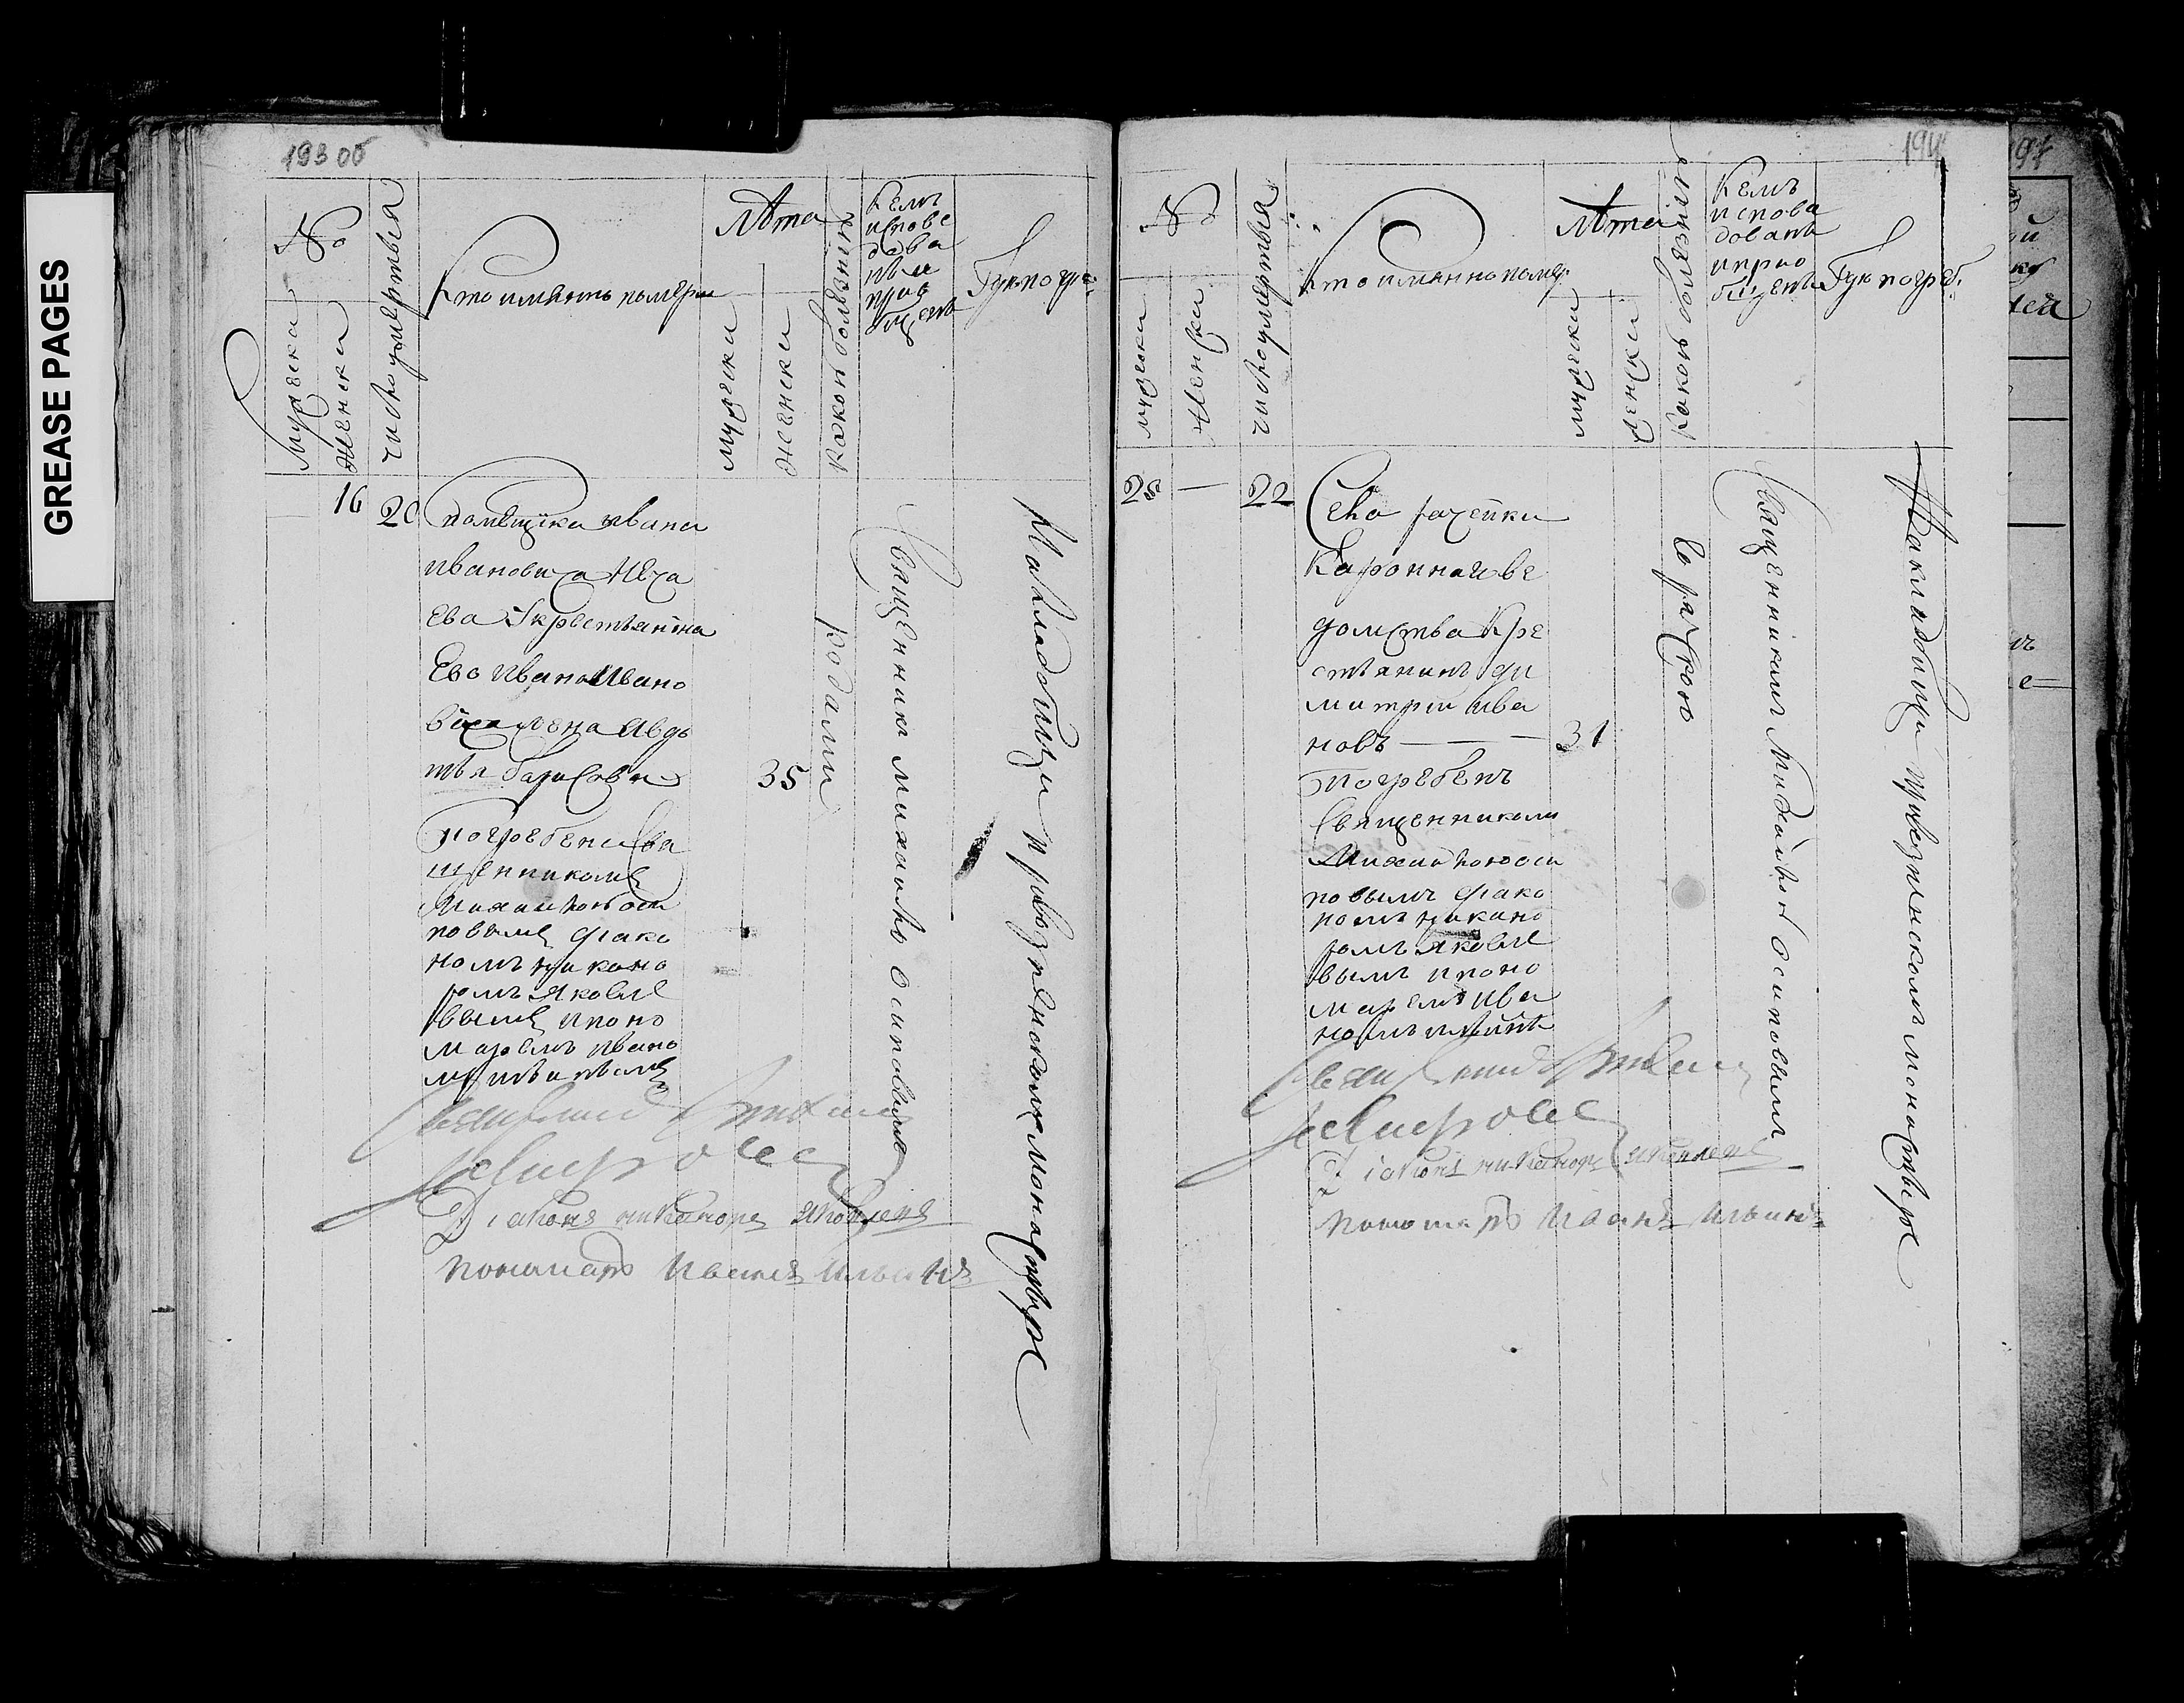 GREASE PAGES
193 об
№
мужеска
женска
число умертвия
кто имянно померъ
лѣта
мужески
женски
какою болезнию
кемъ
испове
дова
нъ и
прио
бщенъ
Где погре:
16
20
помѣщика ивана
ивановича Неча
ева Укрестьянина
Ево ивана Ивано
ва жена Авдо
тья борисовна
35
родами
погребена свя
щенникомъ
Михаиломъ оси
повымъ диако
номъ никано
ромъ Яковле
вымъ и поно
маремъ ивано
мъ ильинымъ
Священника михаило Осиповымъ
На кладбищи при вознесенскомъ монастыре
Священник Михаил
Осипов
Диаконъ никаноръ Яковлевъ
пономарь Иванъ Ильинъ
194
№
мужески
женски
число умертвия
кто имянно помер:
лѣта
мужески
женски
какою болезнию
Кемъ
испова
дованъ
и прио
бщенъ
Где погреб:
28
22
Села рачейки
Ка ронного ве
домства кре
стьянинъ ди
митрий ива
новъ
31
погребенъ
священникомъ
Михаиломъ оси
повымъ диако
номъ никано
ромъ Яковле
вымъ и поно
маремъ ива
номъ ильинъ
горячкою
Священникомъ Михайломъ Осиповымъ
На кладбищи при вознесенскомъ монастыре
Священник Михаил
Осипов
Диаконъ никаноръ Яковлевъ
пономарь Иванъ Ильинъ